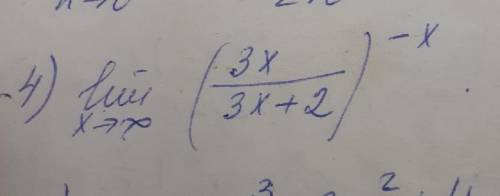 4) lim x→∞ (3x / 3x+2)^-x